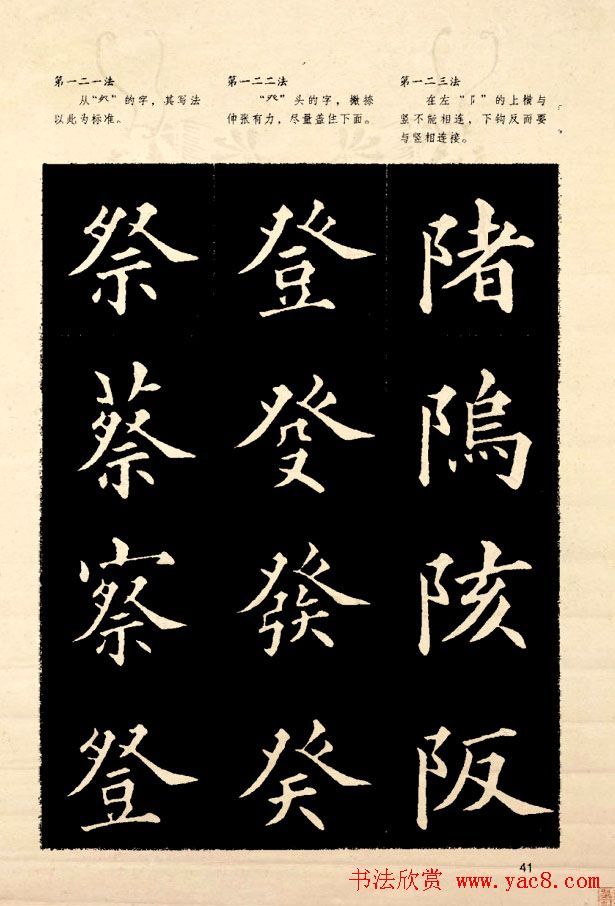 第一二一法
从“”的字，其写法
以此为标准。
第一二二法
“癶”头的字，撇捺
伸张有力，尽量盖住下面。
第一二三法
在左“阝”的上横与
竖不能相连，下钩反而要
与竖相连接。
祭
蔡
察
豋
登
癹
發
癸
陼
隖
陔
阪
41
书法欣赏 www.yac8.com